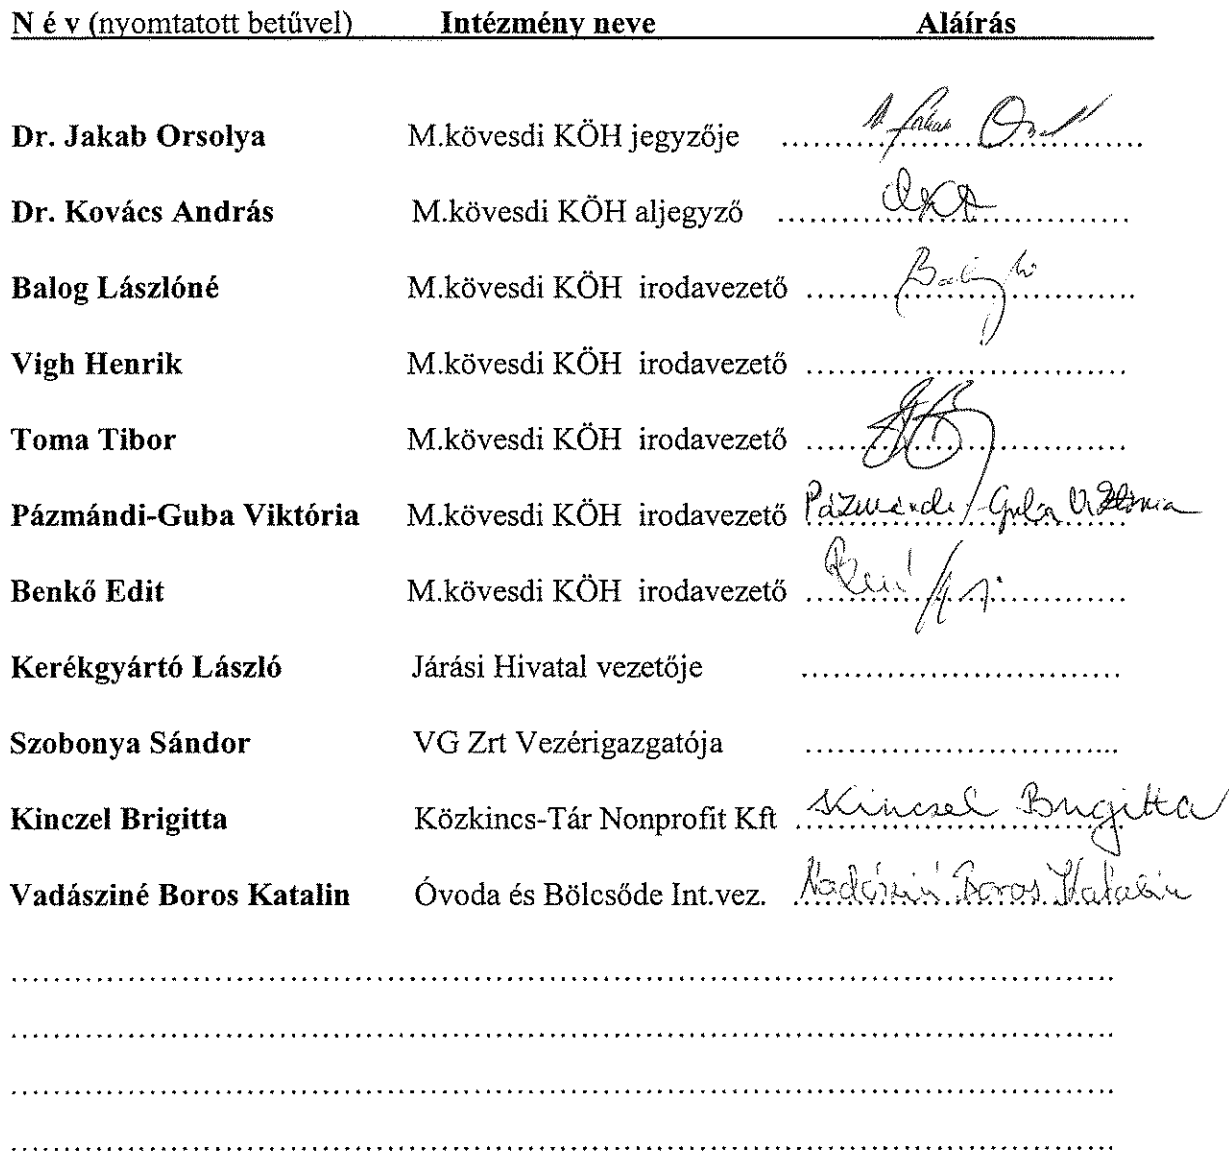 N é v (nyomtatott betűvel) Intézmény neve Aláírás
Dr. Jakab Orsolya M.kövesdi KÖH jegyzője ........................................
Dr. Kovács András M.kövesdi KÖH aljegyző ........................................
Balog Lászlóné M.kövesdi KÖH irodavezető ....................................
Vigh Henrik M.kövesdi KÖH irodavezető ....................................
Toma Tibor M.kövesdi KÖH irodavezető ....................................
Pázmándi-Guba Viktória M.kövesdi KÖH irodavezető Pázmándi-Guba Viktória
Benkő Edit M.kövesdi KÖH irodavezető ....................................
Kerékgyártó László Járási Hivatal vezetője ....................................
Szobonya Sándor VG Zrt Vezérigazgatója ....................................
Kinczel Brigitta Közkincs-Tár Nonprofit Kft Kinczel Brigitta
Vadásziné Boros Katalin Óvoda és Bölcsőde Int.vez. Vadásziné Boros Katalin